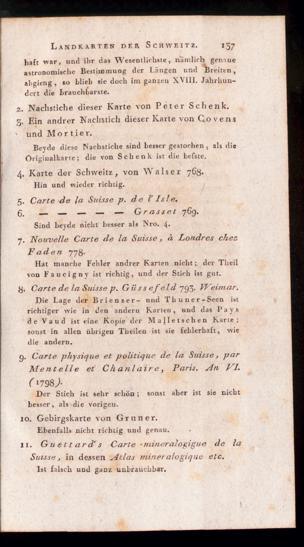 LANDKARTEN DER SCHWEITZ. 157
haft war, und ihr das Wesentlichste, nämlich genaue
astronomische Bestimmung der Längen und Breiten,
abgieng, so blieb sie doch im ganzen XVIII. Jahrhun-
dert die brauchbarste.
2. Nachstiche dieser Karte von Peter Schenk.
3. Ein andrer Nachstich dieser Karte von Covens
und Mortier.
Beyde diese Nachstiche sind besser gestochen, als die
Originalkarte; die von Schenk ist die beste.
4. Karte der Schweitz, von Walser 768.
Hin und wieder richtig.
5. Carte de la Suisse p. de l'Isle.
6. — — — — — Grasset 769.
Sind beyde nicht besser als Nro. 4.
7. Nouvelle Carte de la Suisse, à Londres chez
Faden 778.
Hat manche Fehler andrer Karten nicht; der Theil
von Faucigny ist richtig, und der Stich ist gut.
8. Carte de la Suisse p. Güssefeld 793. Weimar.
Die Lage der Brienzer- und Thuner-Seen ist
richtiger wie in den andern Karten, und das Pays
de Vaud ist eine Kopie der Malletschen Karte;
sonst in allen übrigen Theilen ist sie fehlerhaft, wie
die andern.
9. Carte physique et politique de la Suisse, par
Mentelle et Chanlaire, Paris. An VI.
(1798).
Der Stich ist sehr schön; sonst aber ist sie nicht
besser, als die vorigen.
10. Gebirgskarte von Gruner.
Ebenfalls nicht richtig und genau.
11. Guettard's Carte mineralogique de la
Suisse, in dessen Atlas mineralogique etc.
Ist falsch und ganz unbrauchbar.